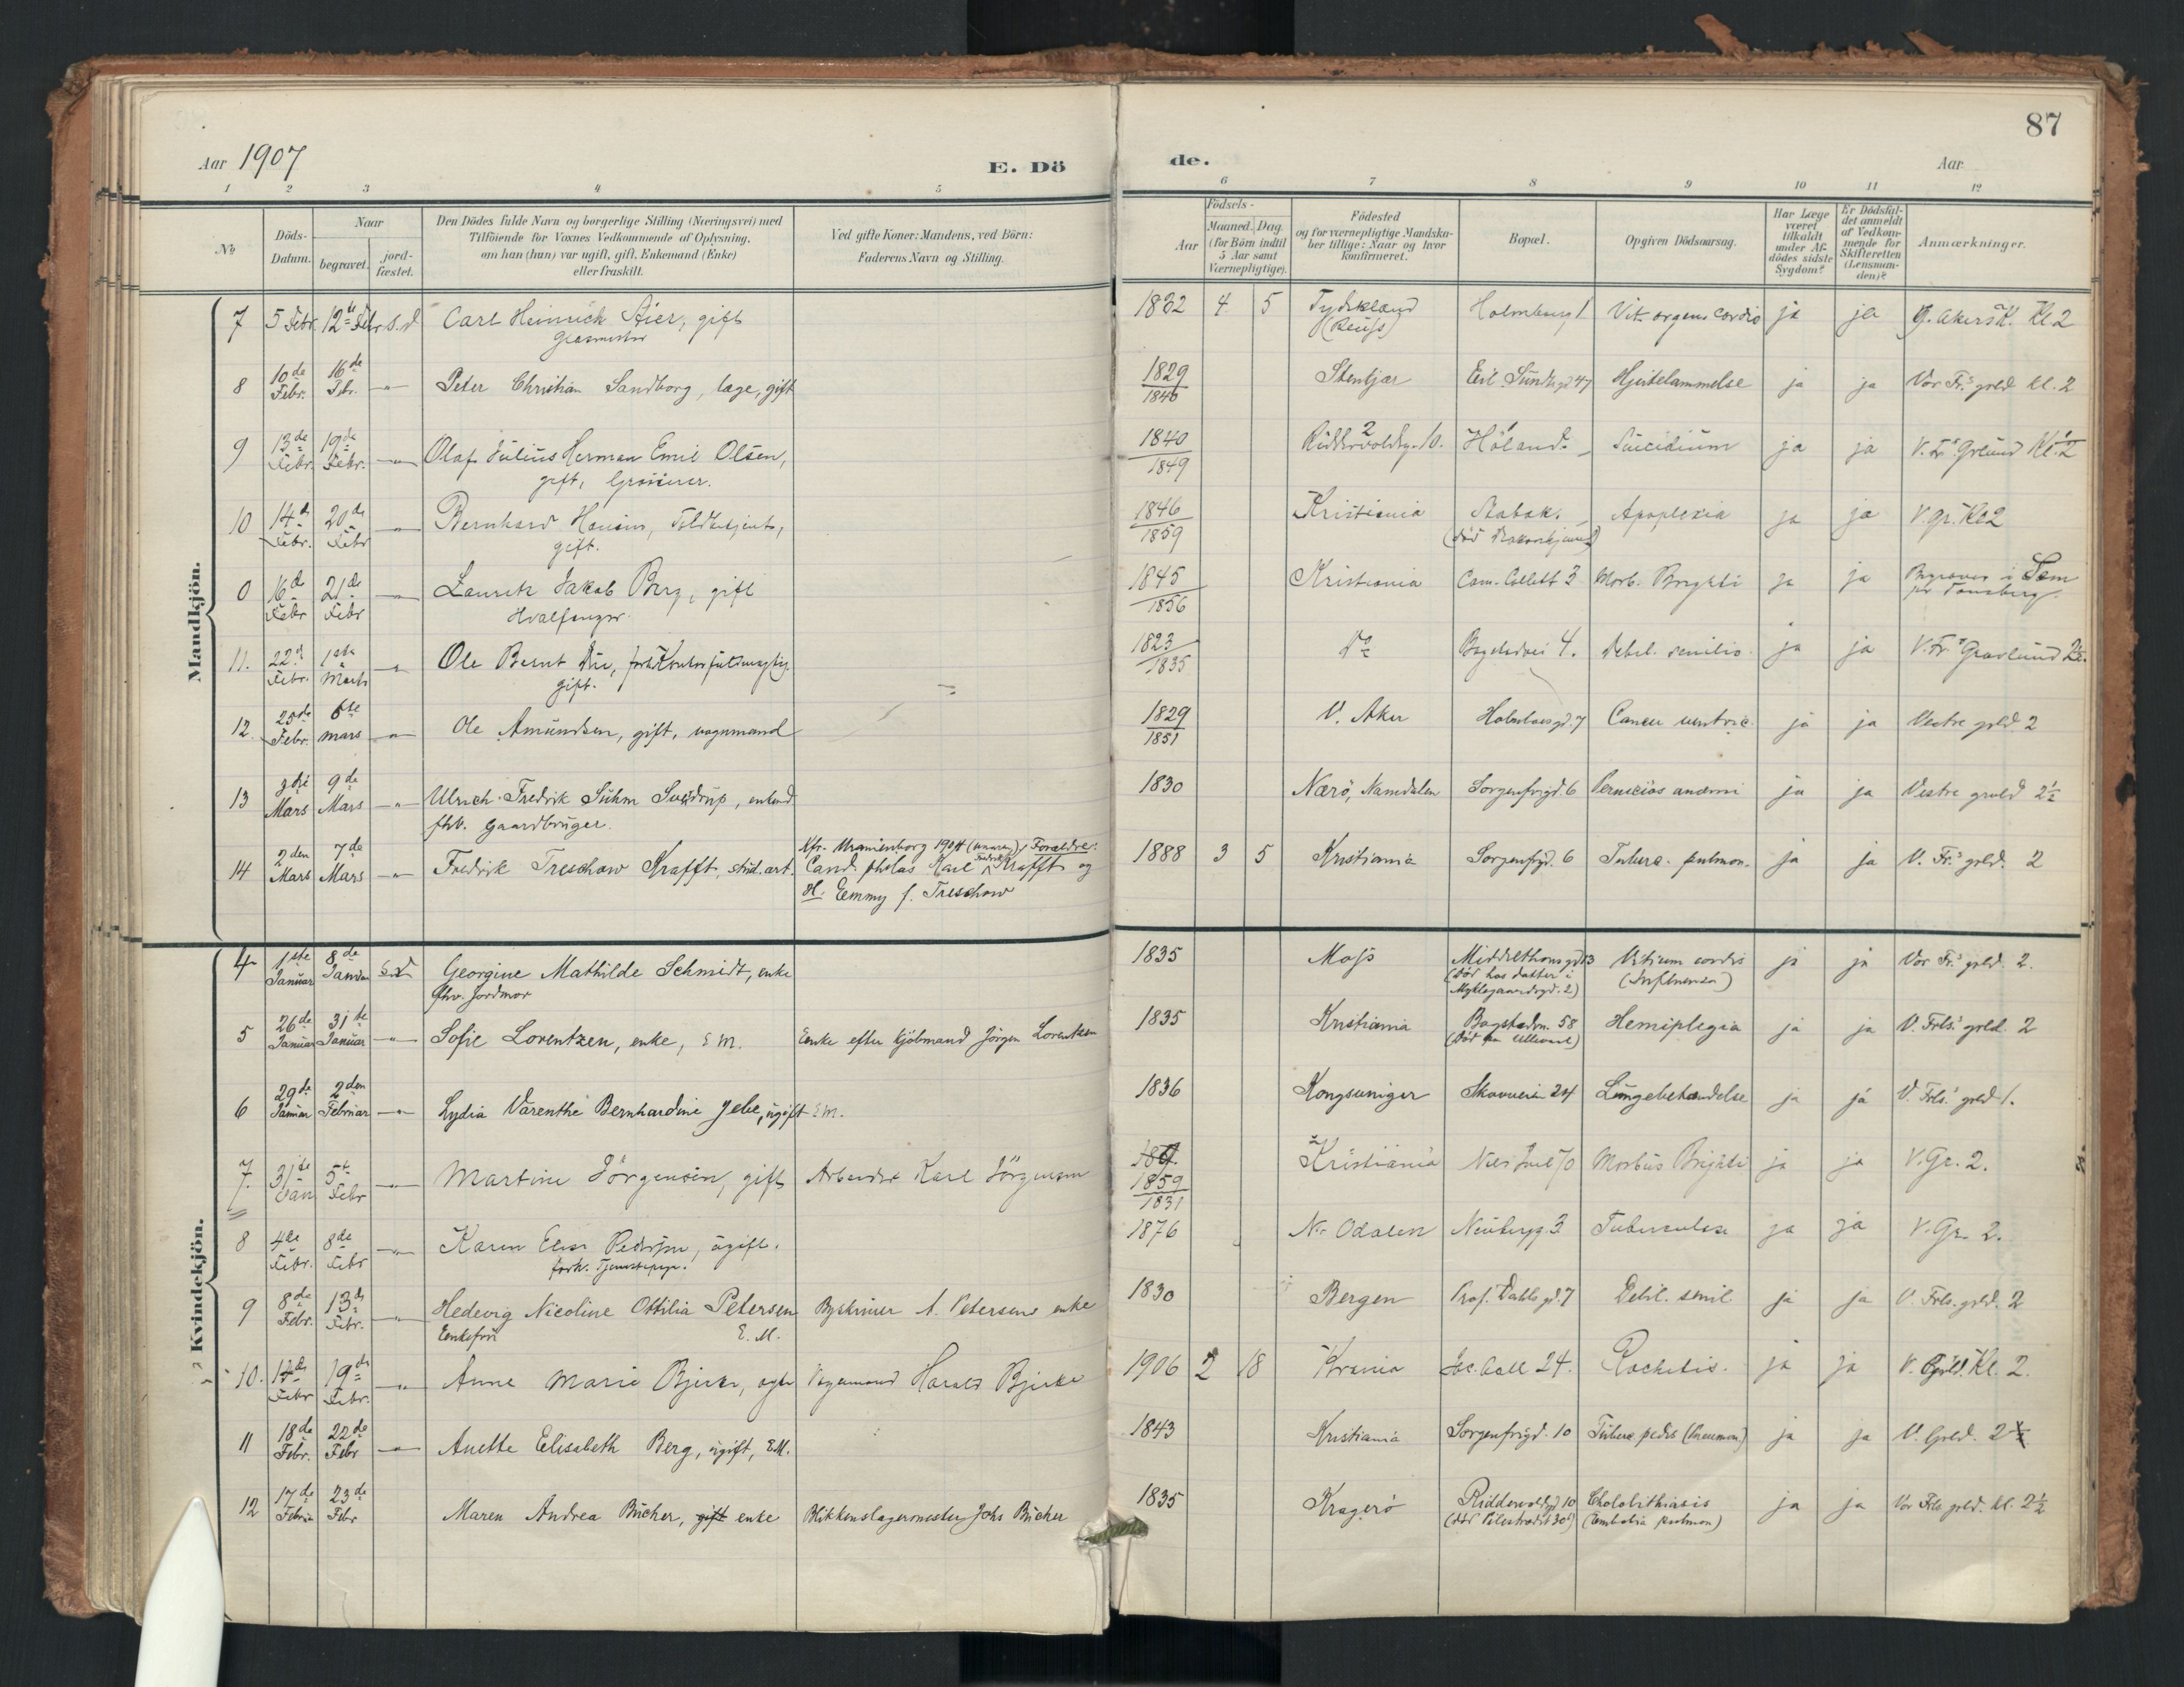 87
Aar 1907
E. Dö de.
Aar
1 2 3 4 5 6 7 8 9 10 11 12
No
Döds-Datum.
Naar
begravet.
jord-fæstet.
Den Dödes fulde Navn og borgerlige Stilling (Næringsvei) med
Tilföiende for Voxnes Vedkommende af Oplysning,
om han (hun) var ugift, gift, Enkemand (Enke)
eller fraskilt.
Ved gifte Koner: Mandens, ved Börn:
Faderens Navn og Stilling.
Födsels-
Aar
Maaned. Dag.
(for Börn indtil
5 Aar samt
Værnepligtige).
Födested
og for værnepligtige Mandska-
ber tillige: Naar og hvor
konfirmeret.
Bopæl.
Opgiven Dödsaarsag.
Har Læge
været
tilkaldt
under Af-
dödes sidste
Sygdom?
Er Dödsfal-
det anmeldt
af Vedkom-
mende for
Skifteretten
(Lensman-
den)?
Anmærkninger.
Mandkjön.
7 5 Febr. 12te Febr s.d Carl Heinrich, gift 1832 4 5 Tydskland Holmburg 1 Vit. organ. cordis ja ja Kl. 2
Glasmester (Reuss)
8 10de Febr. 16de Febr. Peter Christian Sandborg, læge, gift 1829 1846 Stenkjær Eil. Sundtsgd 47 Hjertelammelse ja ja Vor Fr.s grld kl. 2
9 13de Febr. 19de Febr. Olaf Julius Herman Emil Olsen, 1840 1849 Riddervoldsg. 10. Höland. Suicidium ja ja V. Fr.s Grlund Kl. 2
gift,
10 14de Febr. 20de Febr Bernhard Hansen, Toldbetjent, 1846 1859 Kristiania Stabæk. Apoplexia ja ja V. gr. Kl 2
gift.
0 16de Febr 21de Febr Lauritz Jakob Berg, gift 1845 1856 Kristiania Cam. Collett 3 Morb. Brighti ja ja Begraves i Sem
Hvalfanger. pr Tønsberg.
11. 22de Febr. 1ste Marts Ole Bernt, gift. 1823 1835 Do Bogstadvei 4. Debil. senilis ja ja V. Fr.s Gravlund 2½.
12. 25de Febr. 6te mars Ole Amundsen, gift, vognmand 1829 1851 V. Aker 7 Cancer ventric. ja ja Vestre grld 2
13 3die Mars 9de Mars Ulrich Fredrik Suhm Sverdrup, enkemd 1830 Nærö, Namdalen Sorgenfrigd. 6 Perniciös anæmi ja ja Vestre gravld 2½
fhv. gaardbruger.
14 2den Mars 7de Mars Fredrik Treschow Krafft, stud. art. Kfr. Uranienborg 1904 Forældre: 1888 3 5 Kristiania Sorgenfrigd. 6 Tuberc. pulmon. ja ja V. Fr.s grld. 2
Cand. philos Karl Fredrik Krafft og
H. Emmy f. Treschow
Kvindekjön.
4 1ste Januar 8de Januar s.d Georgine Mathilde Schmidt, enke 1835 Moss Middelthunsgd 3 Vitium cordis ja ja Vor Fr.s grld. 2.
fhv. Jordmor (Död hos datter i Myklegaardsgd. 2) (Influenza)
5 26de Januar 31te Januar Sofie Lorentzen, enke, E M. Enke efter kjöbmand Jörgen Lorentzen 1835 Kristiania Bogstadvn. 58 Hemiplegia ja ja V. Frls. grld. 2
(Död paa Ullevaal)
6 29de Januar 2den Februar Lydia Varenthe Bernhardine Jebe, ugift E M. 1836 Kongsvinger Skovveien 24 Lungebetændelse ja ja V. Frls. grld 1.
7. 31te Jan 5te Febr Martine Jörgensen, gift Arbeider Karl Jörgensen 1859 1831 Kristiania Niels Juel 70 Morbus Brighti ja ja V. Gr. 2.
8 4de Febr. 8de Febr Karen Elise Pedersen, ugift. 1876 N. Odalen Neubergg. 3 Tuberculose ja ja V. Gr. 2.
forh. Tjenestepige.
9 8de Febr. 13de Febr. Hedevig Nicoline Ottilia Petersen Byskriver A. Petersens enke 1830 Bergen Prof. Dahls gd. 7 Debil. senil ja ja V. Frls. grld. 2
Enkefru E. M.
10. 14de Febr 19de Febr. Anne Marie Bjerke, ægte Vognmand Harald Bjerke 1906 2 18 Krania Joc. Aall 24. Rachitis. ja ja V. Grld. Kl. 2.
11 18de Febr. 22de Febr Anette Elisabeth Berg, ugift, E M. 1843 Kristiania Sorgenfrigd. 10 Tuberc. pedis (Pneumon) ja ja V. Grld. 2
12 17de Febr 23de Febr Maren Andrea Bücher, gift enke Blikkenslagermester Johs Bücher 1835 Kragerö Riddervoldsgd 10 Cholelithiasis ja ja Vor Frls grld. kl. 2½
(död Pilestrædet 30) (Embolia pulmon)